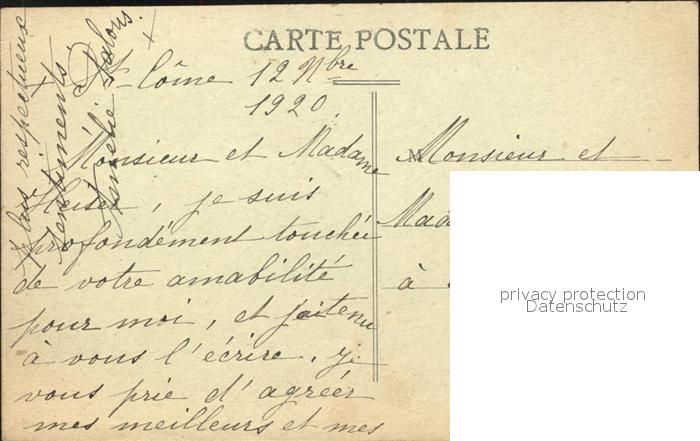 CARTE POSTALE
St Côme 12 9bre
1920.
Monsieur et Madame
Huser, je suis
profondément touchée
de votre amabilité
pour moi, et j'ai tenu
à vous l'écrire. je
vous prie d'agréer
mes meilleurs et mes
plus respectueux
sentiments.
Monsieur et
à
privacy protection
Datenschutz